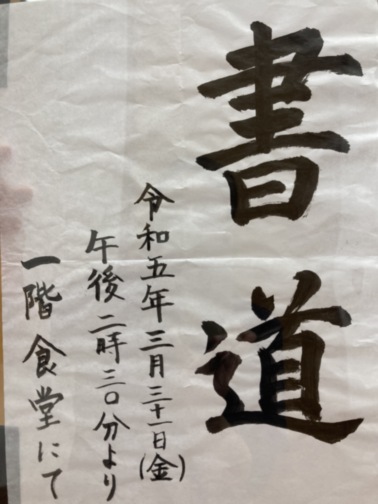 書道
令和五年三月三十一日(金)
午後二時三〇分より
一階食堂にて